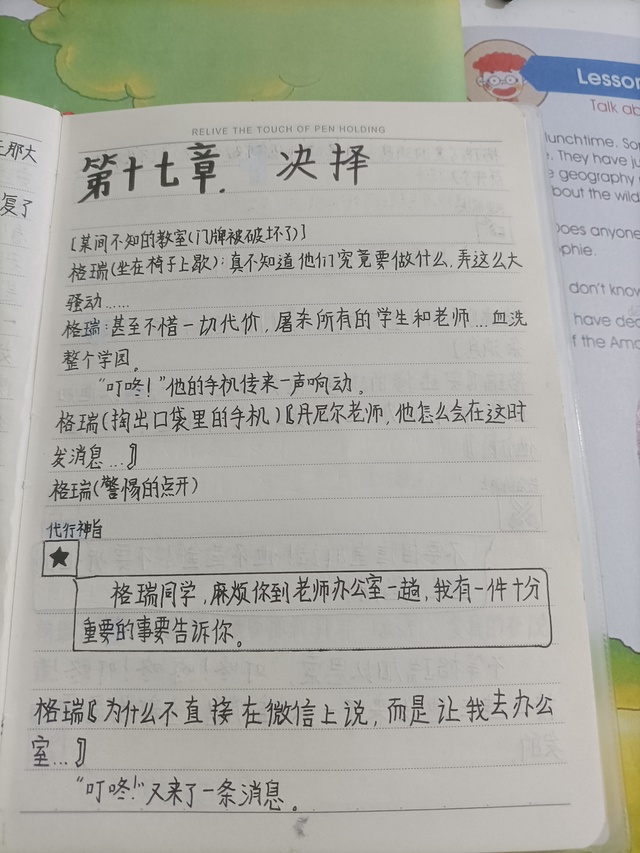 正那大
复了
RELIVE THE TOUCH OF PEN HOLDING
第十七章. 决择
[某间不知的教室(门牌被破坏了)]
格瑞(坐在椅子上歇):真不知道他们究竟要做什么,弄这么大
骚动……
格瑞:甚至不惜一切代价,屠杀所有的学生和老师…血洗
整个学园。
“叮咚!”他的手机传来一声响动。
格瑞(掏出口袋里的手机)〖丹尼尔老师,他怎么会在这时
发消息…〗
格瑞(警惕的点开)
代行神旨
★
格瑞同学,麻烦你到老师办公室一趟,我有一件十分
重要的事要告诉你。
格瑞〖为什么不直接在微信上说,而是让我去办公
室…〗
“叮咚!”又来了一条消息。
Lesson
Talk ab
lunchtime. Son
e. They have ju
e geography
bout the wild
Does anyone
phie.
don't know
have dec
f the Ama